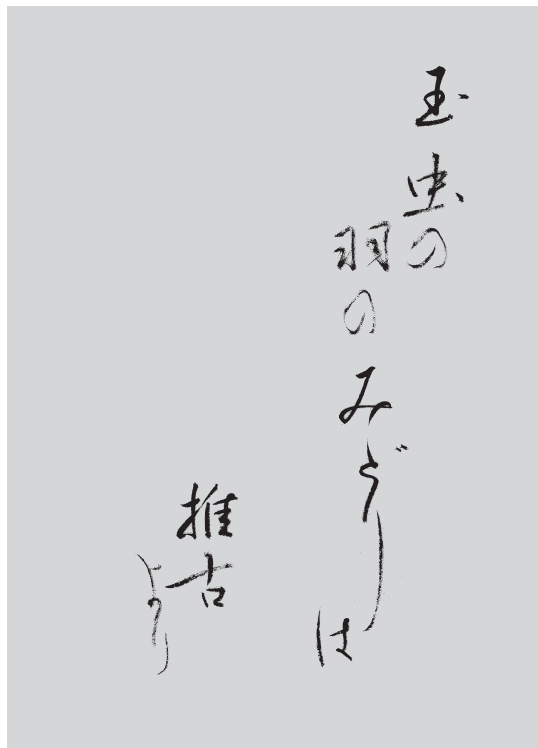 玉虫の
羽のみどりは
推古
より